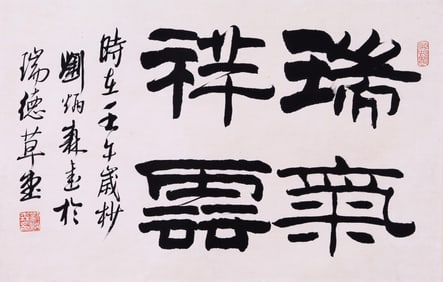 瑞氣
祥雲
時在壬午歲杪
劉炳森書於
瑞德草堂